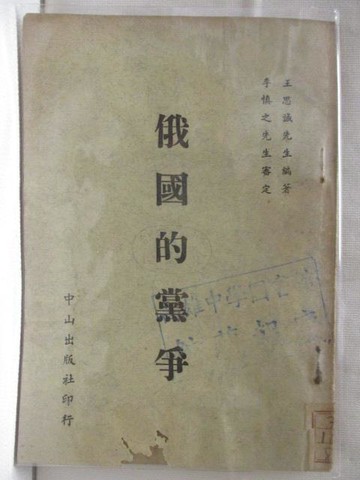 王思誠先生編著
李慎之先生審定
俄國的黨爭
中山出版社印行